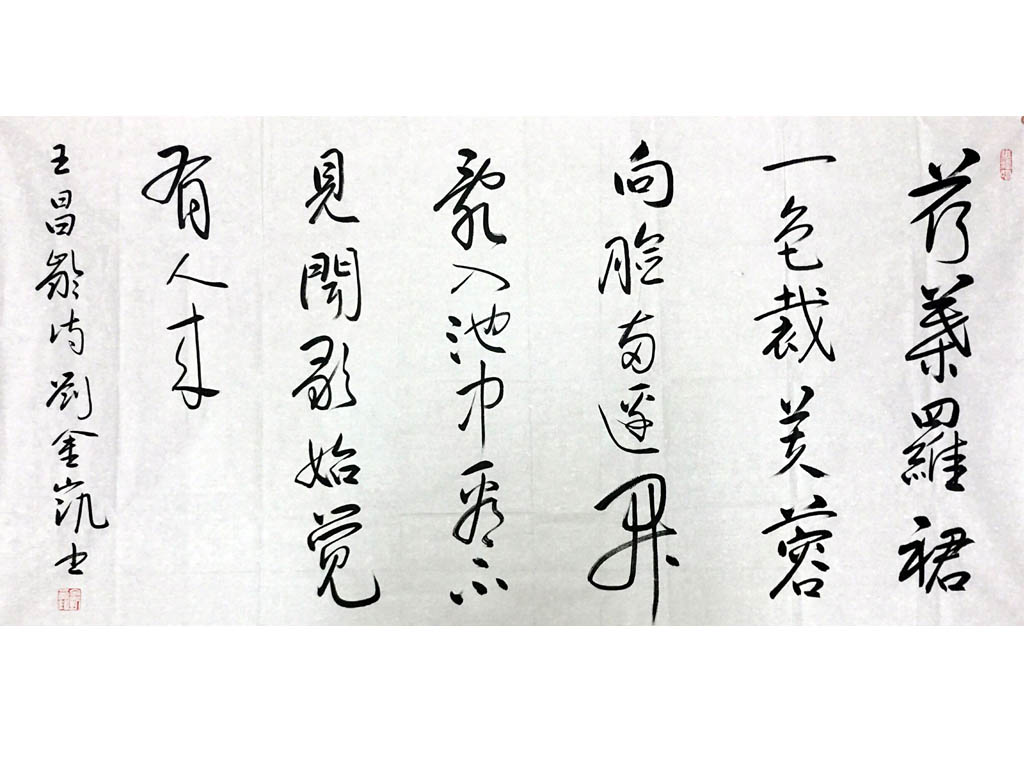 荷葉羅裙
一色裁芙蓉
向臉兩邊開
亂入池中看不
見聞歌始覺
有人來
王昌齡詩劉金凱書